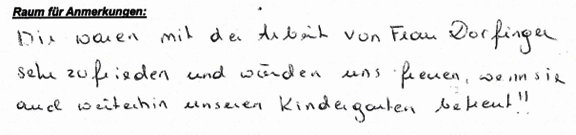 Raum für Anmerkungen:
Wir waren mit der Arbeit von Frau Dorfinger
sehr zufrieden und würden uns freuen, wenn sie
auch weiterhin unseren Kindergarten betreut!!